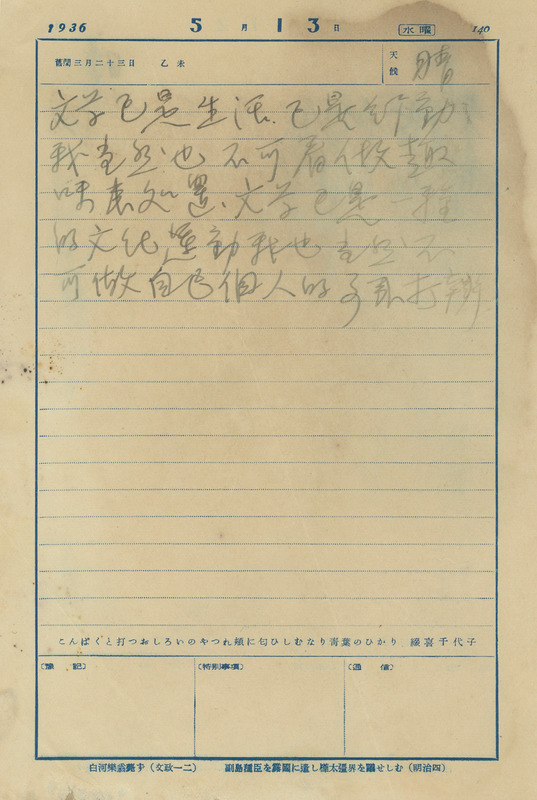 1936 5月13日 水曜 140
舊閏三月二十三日 乙未 天候 晴
文学已是生活、已是勞動、
我当然也不可看做趣
味來処置、文学已是一種
的文化運動我也当然不
可做自己個人的
こんぱくと打つおしろいのやつれ頰に匂ひしむなり青葉のひかり 綴喜千代子
(豫記) (特別事項) (通信)
白河樂翁歿す(文政一二) 副島種臣を露國に遣し樺太彊界を議せしむ(明治四)